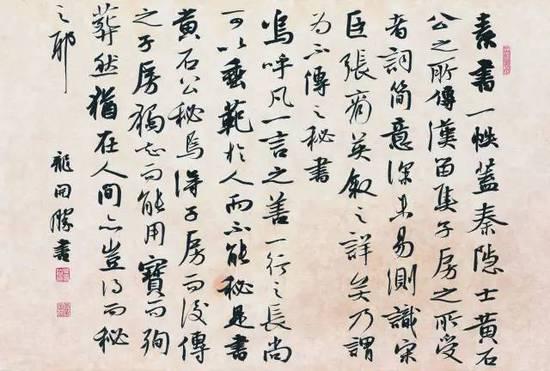 素書一帙蓋秦隱士黃石
公之所傳漢留侯子房之所受
者詞簡意深未易測識宋
臣張商英敘之詳矣乃謂
為不傳之秘書
嗚呼凡一言之善一行之長尚
可以垂範於人而不能秘是書
黃石公秘焉得子房而後傳
之子房獨知而能用寶而殉
葬然猶在人間亦豈得而秘
之耶
龍開勝書